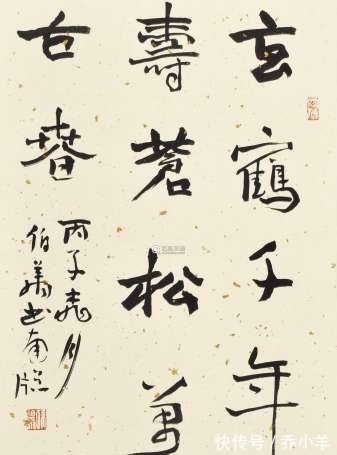 玄鶴千年
壽蒼松萬
古春
丙子月
伯書南
快传号 / 乔小羊